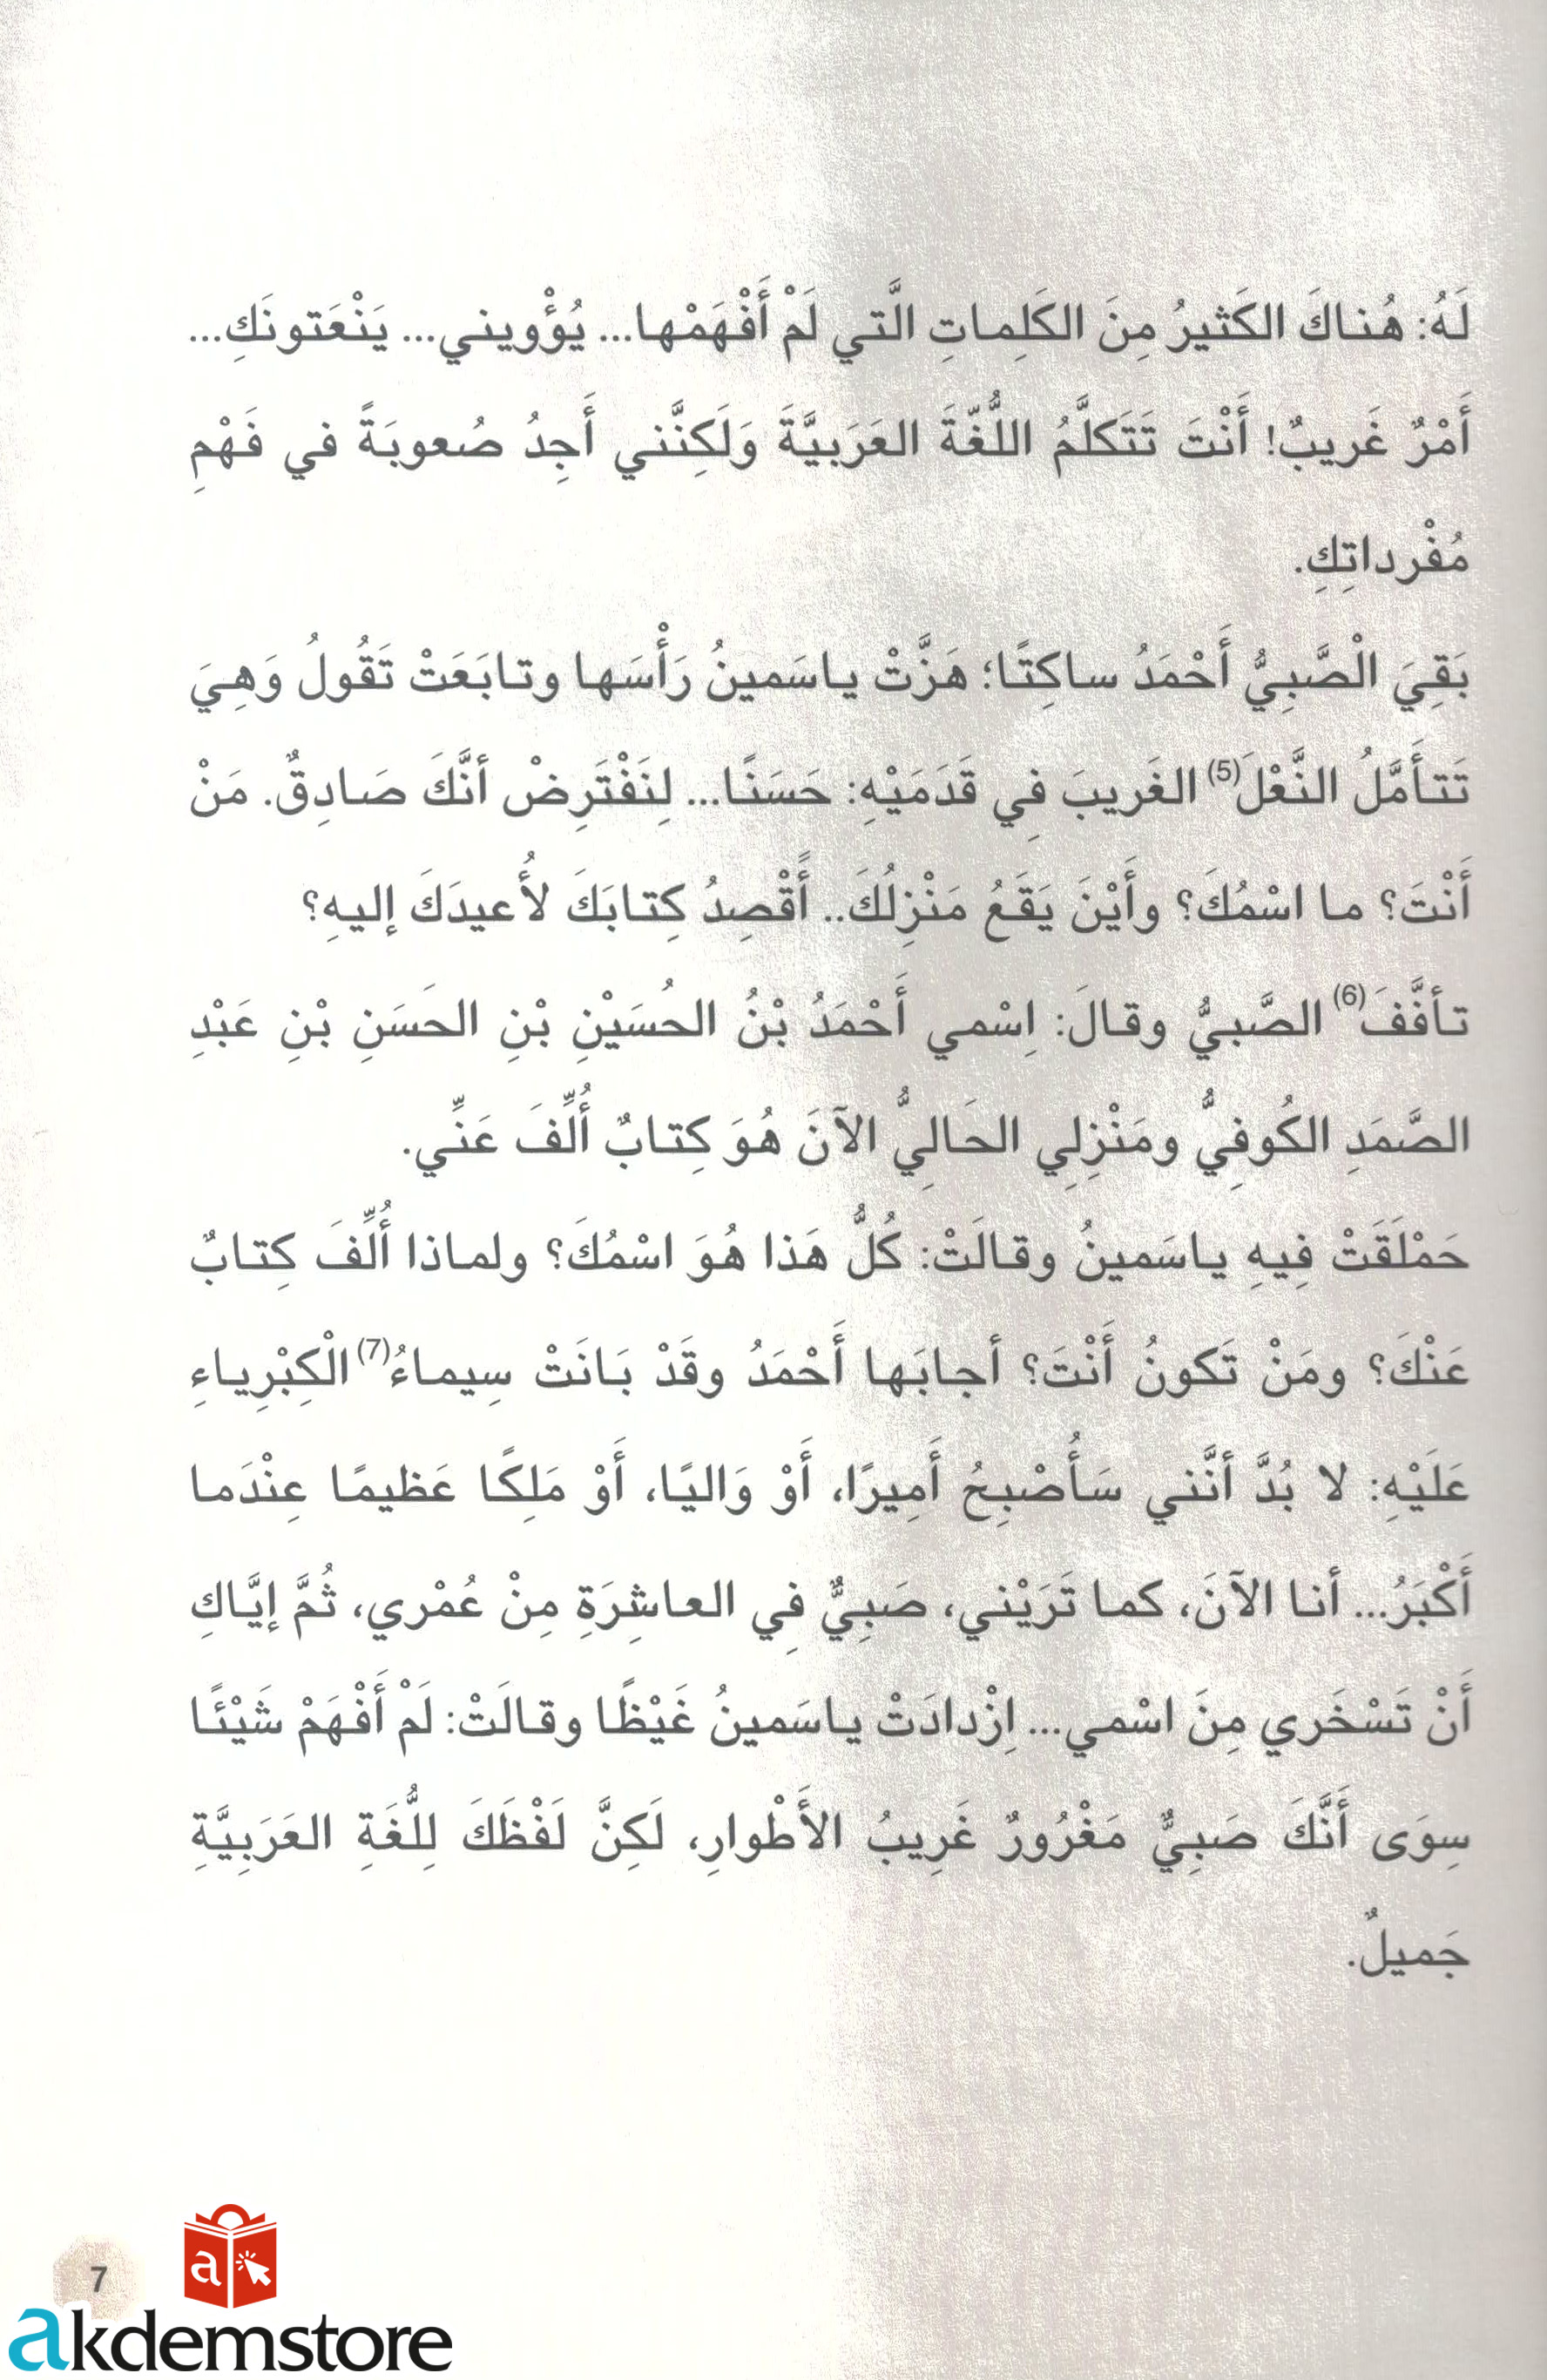 لَهُ: هُناكَ الكَثيرُ مِنَ الكَلِماتِ الَّتي لَمْ أَفْهَمْها... يُؤْويني... يَنْعَتونَكِ...
أَمْرٌ غَريبٌ! أَنْتَ تَتَكلَّمُ اللُّغّةَ العَرَبيَّةَ وَلَكِنَّني أَجِدُ صُعوبَةً في فَهْمِ
مُفْرداتِكِ.
بَقِيَ الْصَّبِيُّ أَحْمَدُ ساكِتًا؛ هَزَّتْ ياسَمينُ رَأْسَها وتابَعَتْ تَقُولُ وَهِيَ
تَتأَمَّلُ النَّعْلَ(5) الغَريبَ فِي قَدَمَيْهِ: حَسَنًا... لِنَفْتَرِضْ أنَّكَ صَادِقٌ. مَنْ
أَنْتَ؟ ما اسْمُكَ؟ وأَيْنَ يَقَعُ مَنْزِلُكَ.. أَقْصِدُ كِتابَكَ لأُعيدَكَ إليهِ؟
تأفَّفَ(6) الصَّبيُّ وقالَ: اِسْمي أَحْمَدُ بْنُ الحُسَيْنِ بْنِ الحَسَنِ بْنِ عَبْدِ
الصَّمَدِ الكُوفِيُّ ومَنْزِلِي الحَالِيُّ الآنَ هُوَ كِتابٌ أُلِّفَ عَنِّي.
حَمْلَقَتْ فِيهِ ياسَمينُ وقالَتْ: كُلُّ هَذا هُوَ اسْمُكَ؟ ولماذا أُلِّفَ كِتابٌ
عَنْكَ؟ ومَنْ تَكونُ أَنْتَ؟ أجابَها أَحْمَدُ وقَدْ بَانَتْ سِيماءُ(7) الْكِبْرِياءِ
عَلَيْهِ: لا بُدَّ أنَّني سَأُصْبِحُ أَمِيرًا، أَوْ وَاليًا، أَوْ مَلِكًا عَظيمًا عِنْدَما
أَكْبَرُ... أنا الآنَ، كما تَرَيْني، صَبِيٌّ فِي العاشِرَةِ مِنْ عُمْري، ثُمَّ إيَّاكِ
أَنْ تَسْخَري مِنَ اسْمي... اِزْدادَتْ ياسَمينُ غَيْظًا وقالَتْ: لَمْ أَفْهَمْ شَيْئًا
سِوَى أَنَّكَ صَبِيٌّ مَغْرُورٌ غَرِيبُ الأَطْوارِ، لَكِنَّ لَفْظَكَ لِلُّغَةِ العَرَبِيَّةِ
جَميلٌ.
7
a
akdemstore